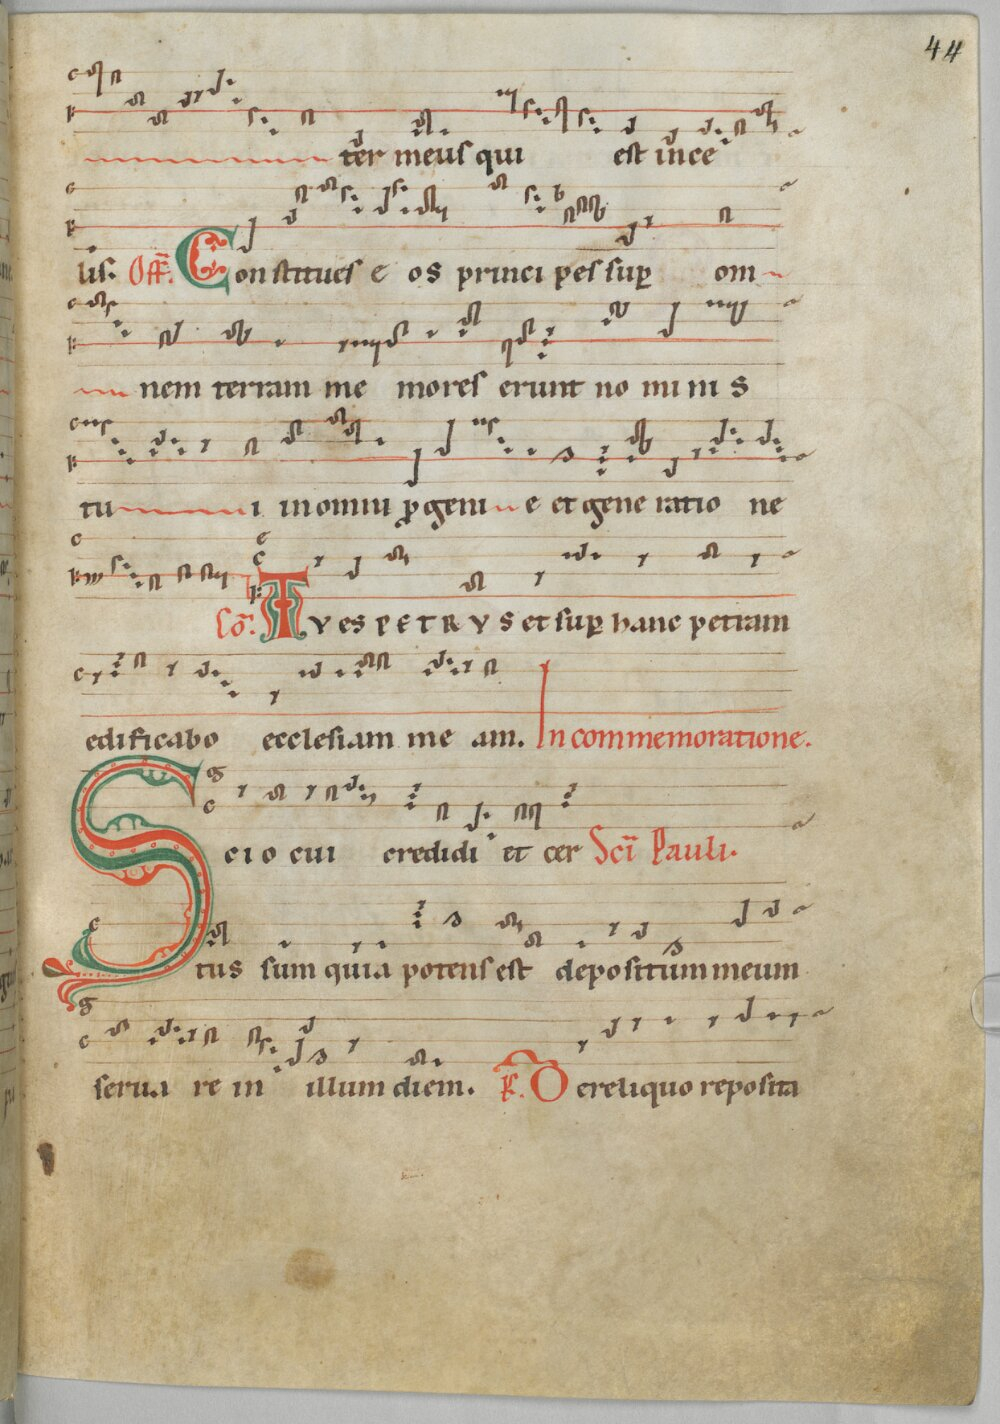 44
ter meus qui est in ce
lis: Off. Constitues e os princi pes sup om
nem terram me mores erunt no mi ni s
tu i in omni progeni e et gene ratio ne
Co. Tv es petrvs et sup hanc petram
edificabo ecclesiam me am. In commemoratione.
Scio cui credidi et cer Sci Pauli.
tus sum quia potens est depositum meum
serua re in illum diem. R. De reliquo reposita